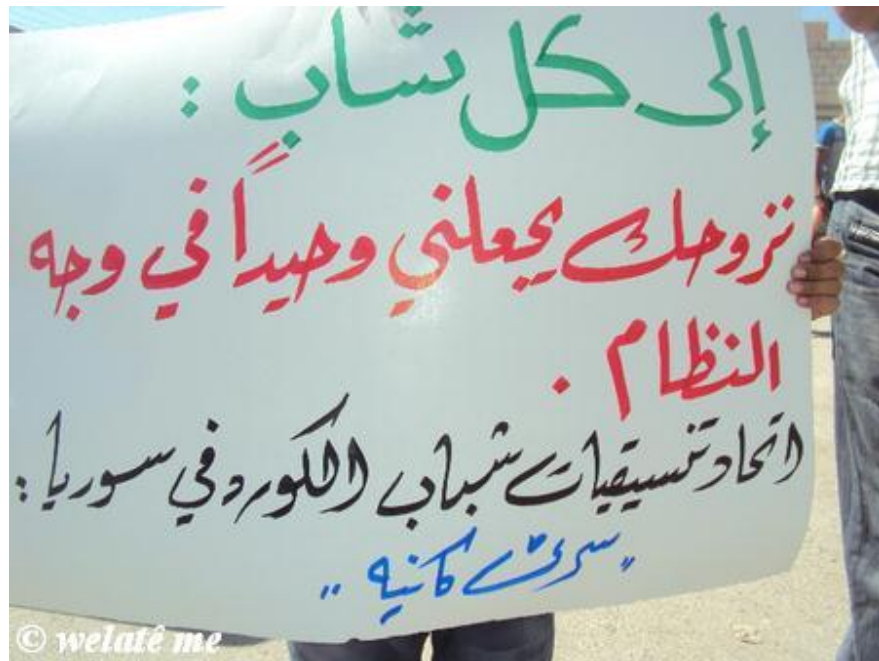 إلى كل شاب :
نزوحك يجعلني وحيداً في وجه
النظام .
اتحاد تنسيقيات شباب الكورد في سوريا :
"سري كانيه"
© welatê me